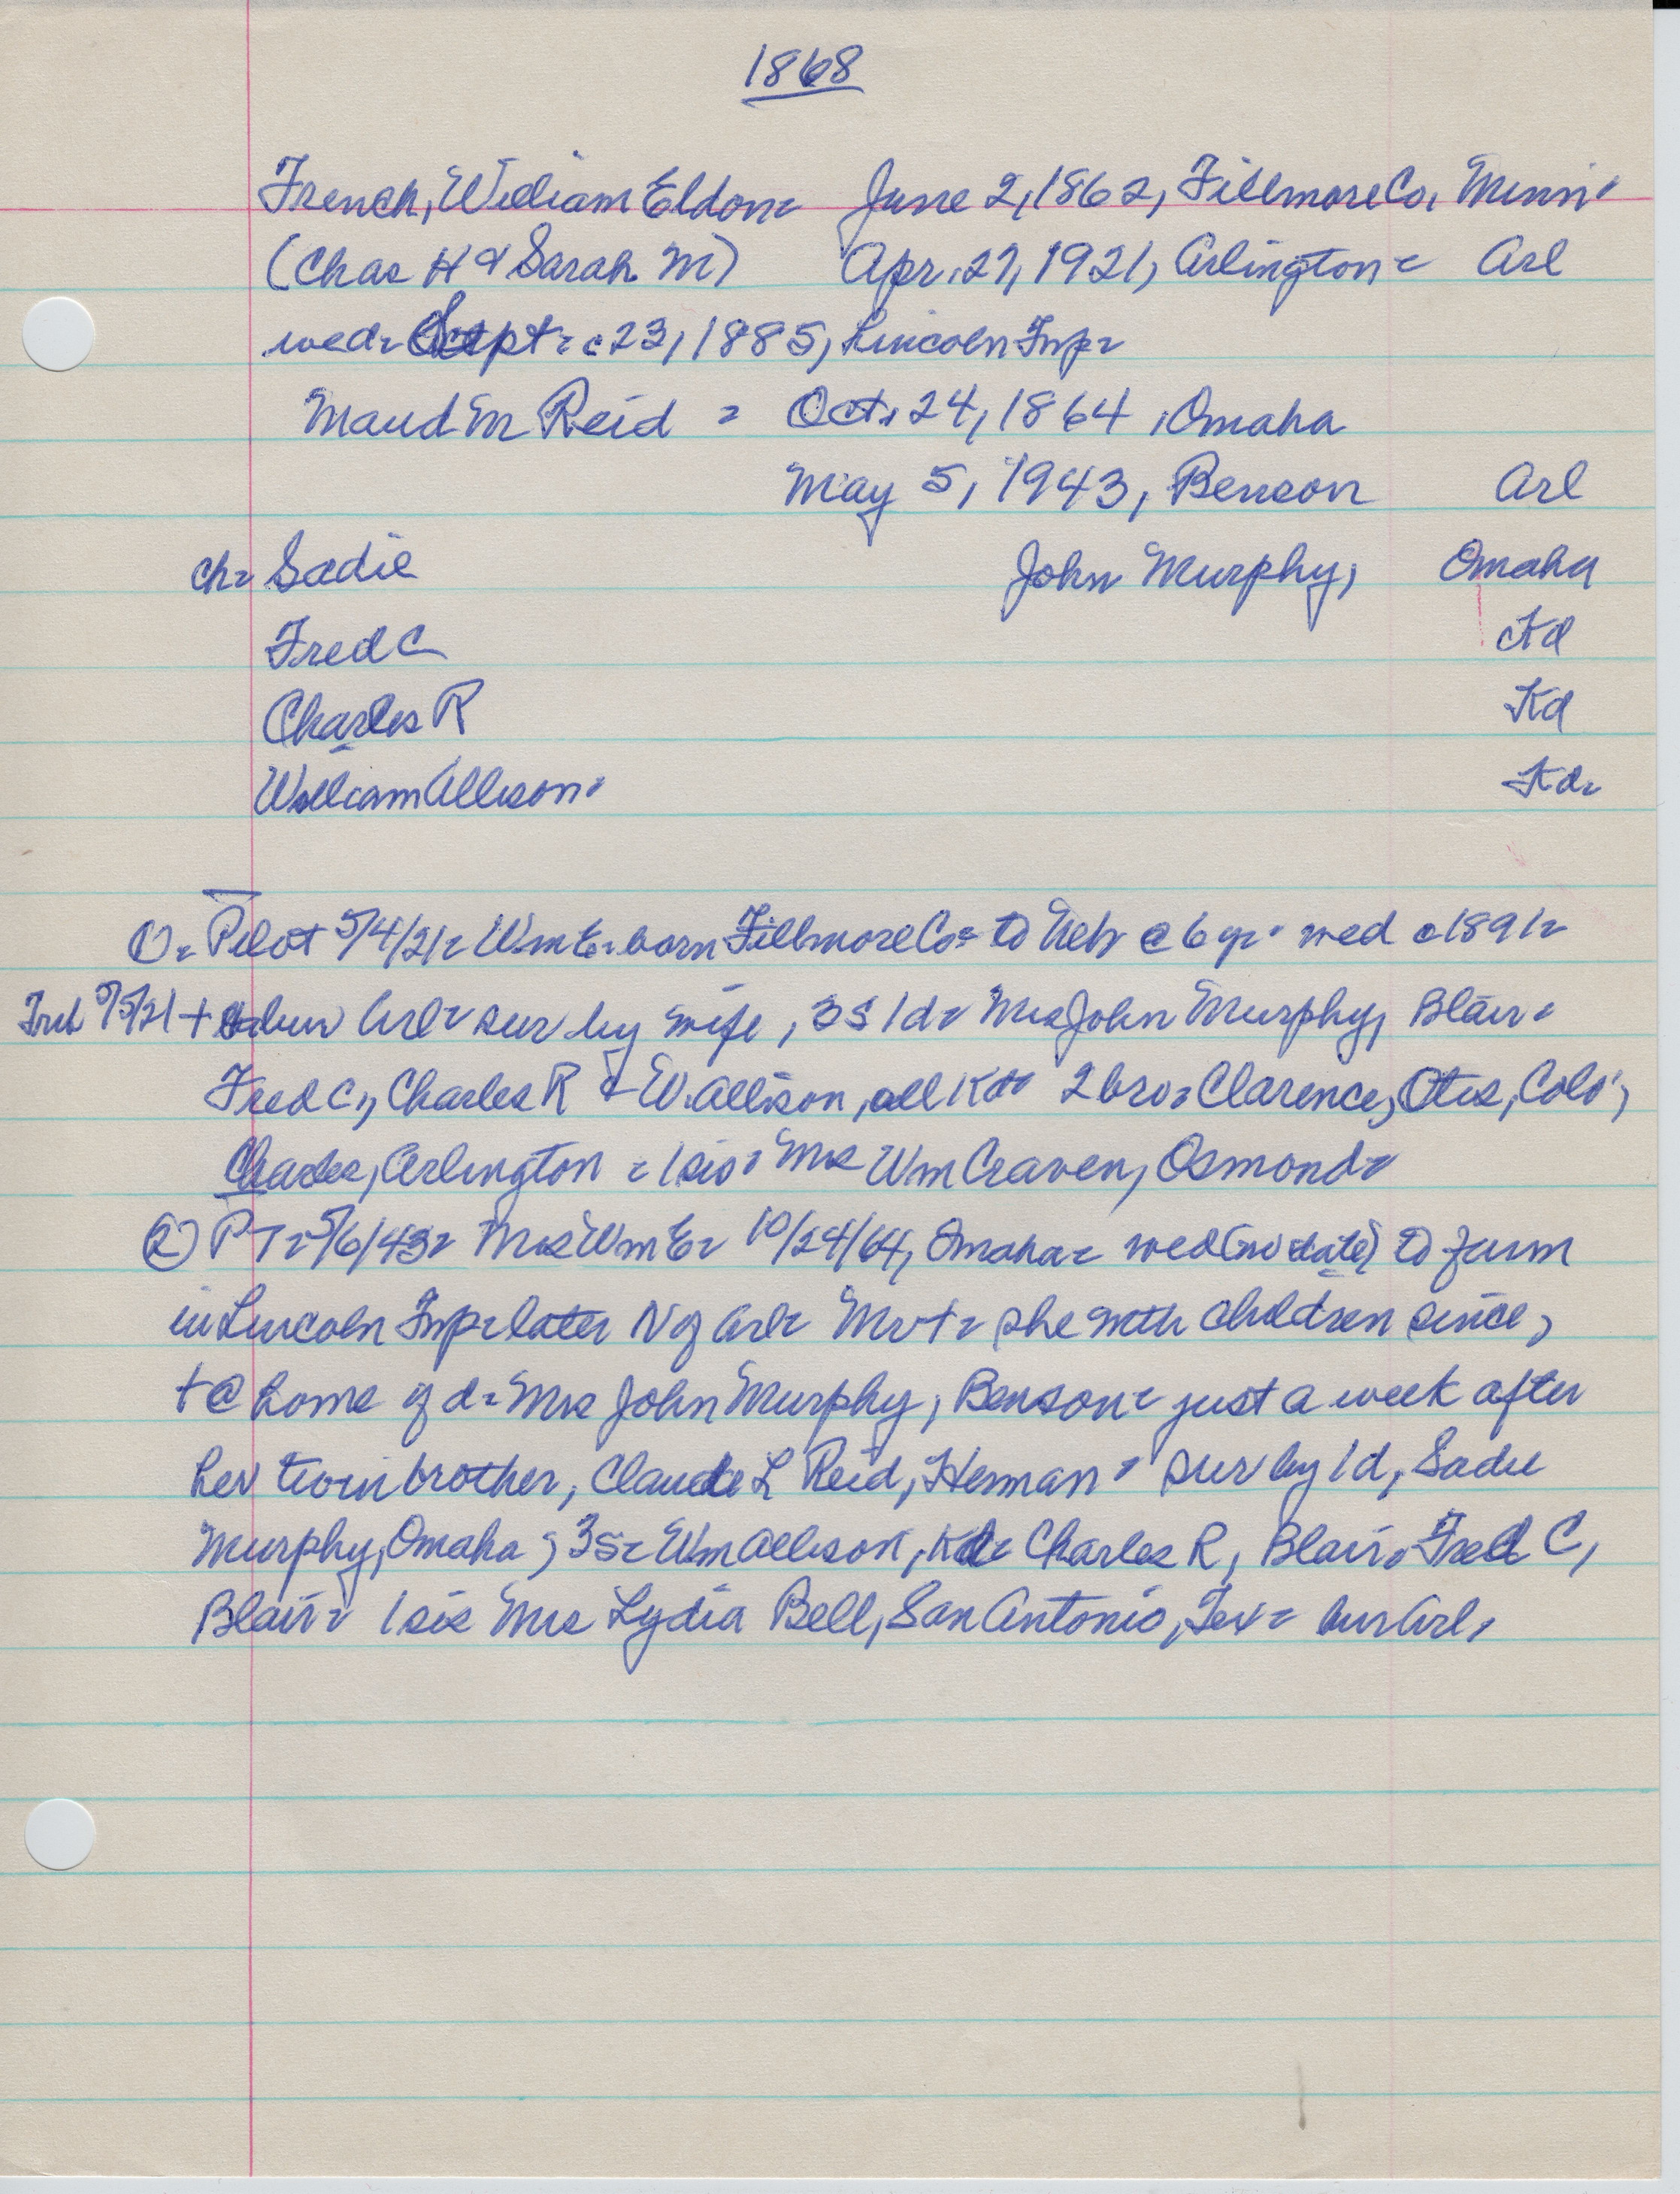 1868
French, William Eldon- June 2, 1862, Fillmore Co, Minn-
(Chas H & Sarah M) Apr. 27, 1921, Arlington- Arl
wed- Sept- c23, 1885, Lincoln Twp-
Maud M Reid - Oct. 24, 1864, Omaha
May 5, 1943, Benson Arl
ch- Sadie John Murphy, Omaha
Fred C Kd
Charles R Kd
William Allison- Kd-
①- Pilot 5/4/21- Wm E- born Fillmore Co- to Neb @ 6 yr- wed c1891-
Trib 5/5/21 + bur Arl- sur by wife, 3s 1d- Mrs John Murphy, Blair-
Fred C, Charles R & W. Allison, all Kd- 2 bro- Clarence, Otis, Colo-,
Charles, Arlington - 1 sis- Mrs Wm Craven, Osmond-
② PT- 5/6/43- Mrs Wm E- 10/24/64, Omaha- wed (no date) to farm
in Lincoln Twp- later N of Arl- Mr +- she with children since,
+ @ home of d- Mrs John Murphy, Benson- just a week after
her twin brother, Claude L Reid, Herman- sur by 1d, Sadie
Murphy, Omaha, 3s- Wm Allison, Kd- Charles R, Blair- Fred C,
Blair- 1 sis Mrs Lydia Bell, San Antonio, Tex- bur Arl,